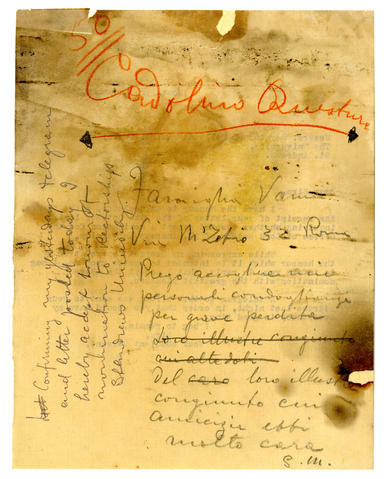 50//
Cadolino Questure
Famiglia
Via 32 Roma
Prego accettare mie
personali condoglianze
per grave perdita
loro illustre congiunto
cui alte doti
del caro loro illustre
congiunto cui
amicizia ebbi
molto cara
G. M.
Confirming my yesterdays telegram
and letter posted today I
hereby accept honour of
nomination to Rectorship
St Andrews University